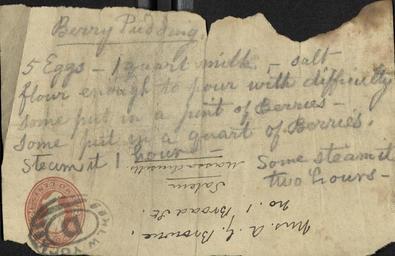 Berry Pudding
5 Eggs – 1 quart milk – salt
flour enough to pour with difficulty
some put in a pint of Berries –
Some put in a quart of Berries.
Steam it 1 hour –
Some steam it
two hours –
Mrs. A. G. Browne.
No. 1 Broad St.
Salem
Massachusetts
NEW YORK